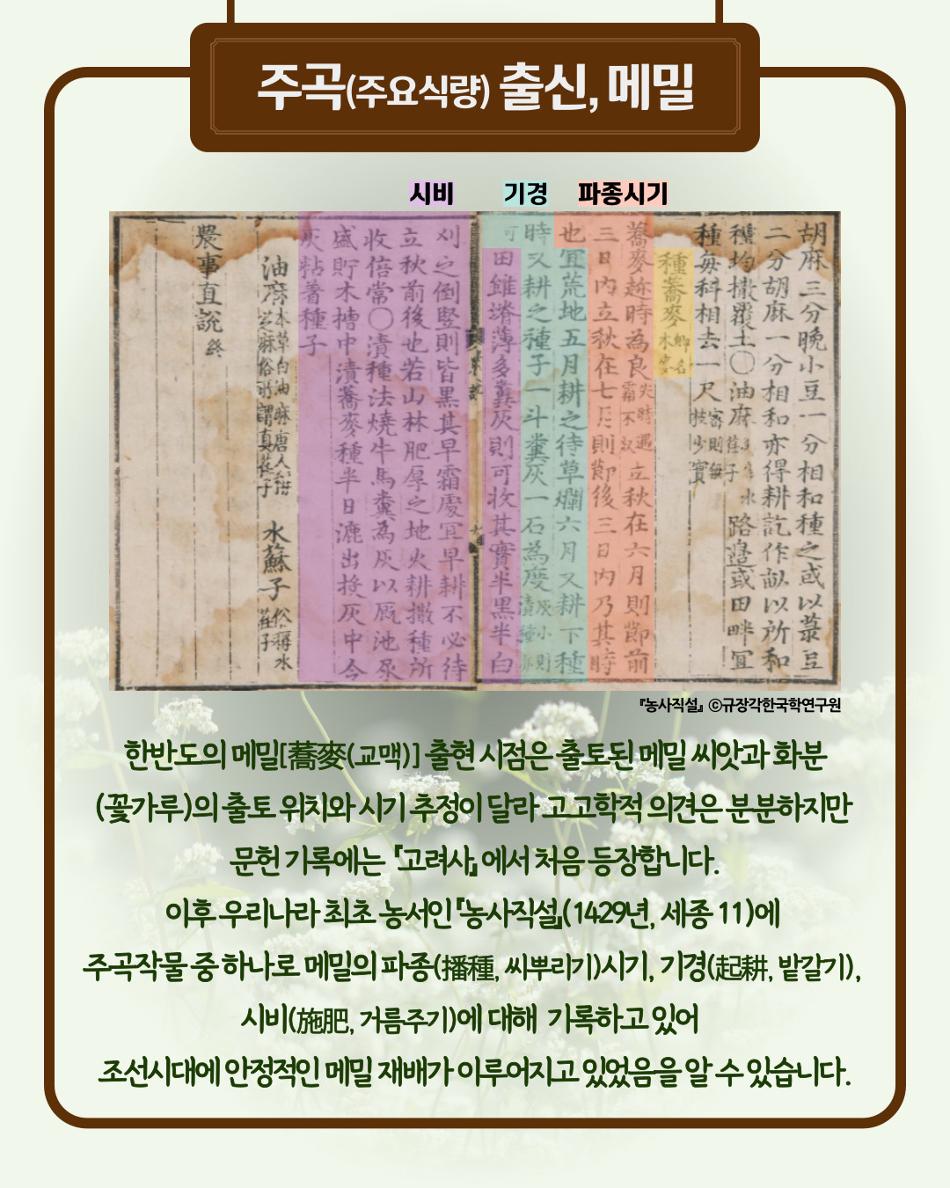 주곡(주요식량) 출신, 메밀
시비 기경 파종시기
胡麻三分晚小豆一分相和種之或以菉豆
二分胡麻一分相和亦得耕訖作畝以所和
種均撒覆土〇油麻 水 路邊或田畔宜
種每科相去一尺
種蕎麥 鄕名 木麥
蕎麥趁時為良 立秋在六月則節前
三日內立秋在七月則節後三日內乃其時
也宜荒地五月耕之待草爛六月又耕下種
時又耕之種子一斗糞灰一石為度
可
田雖瘠薄多糞灰則可收其實半黑半白
刈之倒竪則皆黑其早霜處宜早耕不必待
立秋前後也若山林肥厚之地火耕撒種所
收倍常〇漬種法燒牛馬糞為灰以廐池尿
盛貯木槽中漬蕎麥種半日漉出投灰中令
灰粘著種子
油麻 水蘇子
農事直說 終
『농사직설』 ©규장각한국학연구원
한반도의 메밀[蕎麥(교맥)] 출현 시점은 출토된 메밀 씨앗과 화분
(꽃가루)의 출토 위치와 시기 추정이 달라 고고학적 의견은 분분하지만
문헌 기록에는 『고려사』에서 처음 등장합니다.
이후 우리나라 최초 농서인 『농사직설』(1429년, 세종 11)에
주곡작물 중 하나로 메밀의 파종(播種, 씨뿌리기)시기, 기경(起耕, 밭갈기),
시비(施肥, 거름주기)에 대해 기록하고 있어
조선시대에 안정적인 메밀 재배가 이루어지고 있었음을 알 수 있습니다.